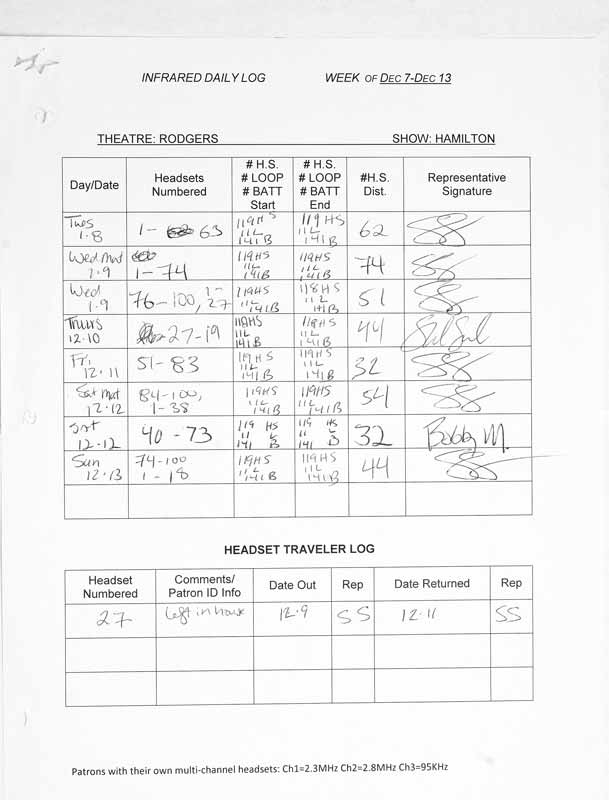 INFRARED DAILY LOG WEEK OF DEC 7-DEC 13
THEATRE: RODGERS SHOW: HAMILTON
Day/Date Headsets Numbered # H.S. # LOOP # BATT Start # H.S. # LOOP # BATT End #H.S. Dist. Representative Signature
Tues 1-8 1- 63 119HS 11L 141B 119HS 11L 141B 62
Wed Mat 1-9 1-74 119HS 11L 141B 119HS 11L 141B 74
Wed 1-9 76-100, 1-27 119HS 11L 141B 118HS 11L 141B 51
Thurs 12-10 27-19 119HS 11L 141B 118HS 11L 141B 44
Fri 12-11 51-83 119HS 11L 141B 119HS 11L 141B 32
Sat Mat 12-12 84-100, 1-38 119HS 11L 141B 119HS 11L 141B 54
Sat 12-12 40-73 119 HS 11 L 141 B 119 HS 11 L 141 B 32 Bobby M.
Sun 12-13 74-100 1-18 119HS 11L 141B 119HS 11L 141B 44
HEADSET TRAVELER LOG
Headset Numbered Comments/ Patron ID Info Date Out Rep Date Returned Rep
27 Left in house 12-9 SS 12-11 SS
Patrons with their own multi-channel headsets: Ch1=2.3MHz Ch2=2.8MHz Ch3=95KHz